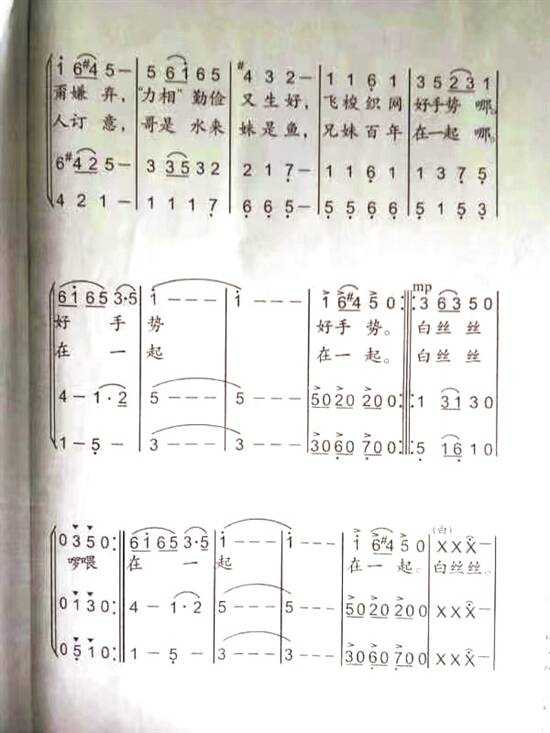 1 6#4 5 – 5 6 1 6 5 #4 3 2 – 1 1 6 1 3 5 2 3 1
甭嫌弃, “力相”勤俭 又生好, 飞梭织网 好手势 哪。
人订意, 哥是水来 妹是鱼, 兄妹百年 在一起 哪。
6#4 2 5 – 3 3 5 3 2 2 1 7 – 1 1 6 1 1 3 7 5
4 2 1 – 1 1 1 7 6 6 5 – 5 5 6 6 5 1 5 3
mp
6 1 6 5 3·5 1 – – – 1 – – – 1 6#4 5 0 : 3 6 3 5 0
好手势 好手势。 白丝丝
在一起 在一起。 白丝丝
4 – 1·2 5 – – – 5 – – – 5 0 2 0 2 0 0 : 1 3 1 3 0
1 – 5 – 3 – – – 3 – – – 3 0 6 0 7 0 0 : 5 1 6 1 0
(白)
0 3 5 0 : 6 1 6 5 3·5 1 – – – 1 – – – 1 6#4 5 0 X X X –
啰喂 在一起 在一起。 白丝丝。
0 1 3 0 : 4 – 1·2 5 – – – 5 – – – 5 0 2 0 2 0 0 X X X –
0 5 1 0 : 1 – 5 – 3 – – – 3 – – – 3 0 6 0 7 0 0 X X X –